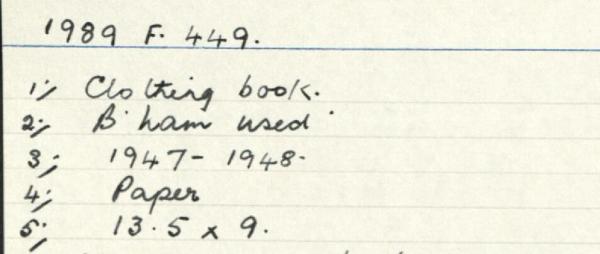 1989 F. 449.
1; Clothing book.
2; B'ham used
3; 1947-1948.
4; Paper
5; 13.5 x 9.